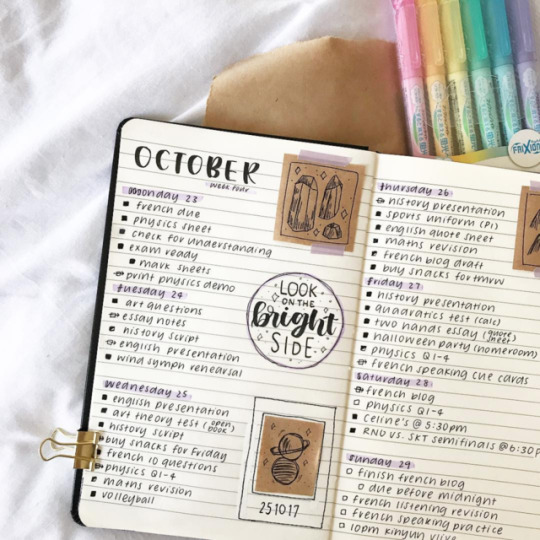 OCTOBER
week four
monday 23
french due
physics sheet
check for understanding
exam ready
mark sheets
print physics demo
tuesday 24
art questions
essay notes
history script
english presentation
wind symph rehearsal
wednesday 25
english presentation
art theory test (open book)
history script
buy snacks for friday
french 10 questions
physics Q1-4
maths revision
volleyball
LOOK
ON THE
bright
SIDE
25·10·17
thursday 26
history presentation
sports uniform (P1)
english quote sheet
maths revision
french blog draft
buy snacks for tmrw
friday 27
history presentation
quadratics test (calc)
two hands essay (quote sheet)
halloween party (homeroom)
physics Q1-4
french speaking cue cards
saturday 28
french blog
physics Q1-4
celine's @ 5:30pm
RNG vs. SKT semifinals @ 6:30p
sunday 29
finish french blog
due before midnight
french listening revision
french speaking practice
10pm kihyun vlive
FRIXION